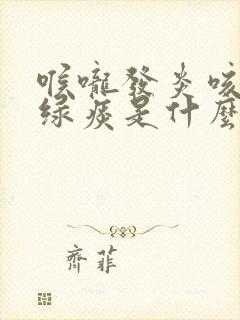 喉嚨發炎咳
绿痰是什麼
齊菲